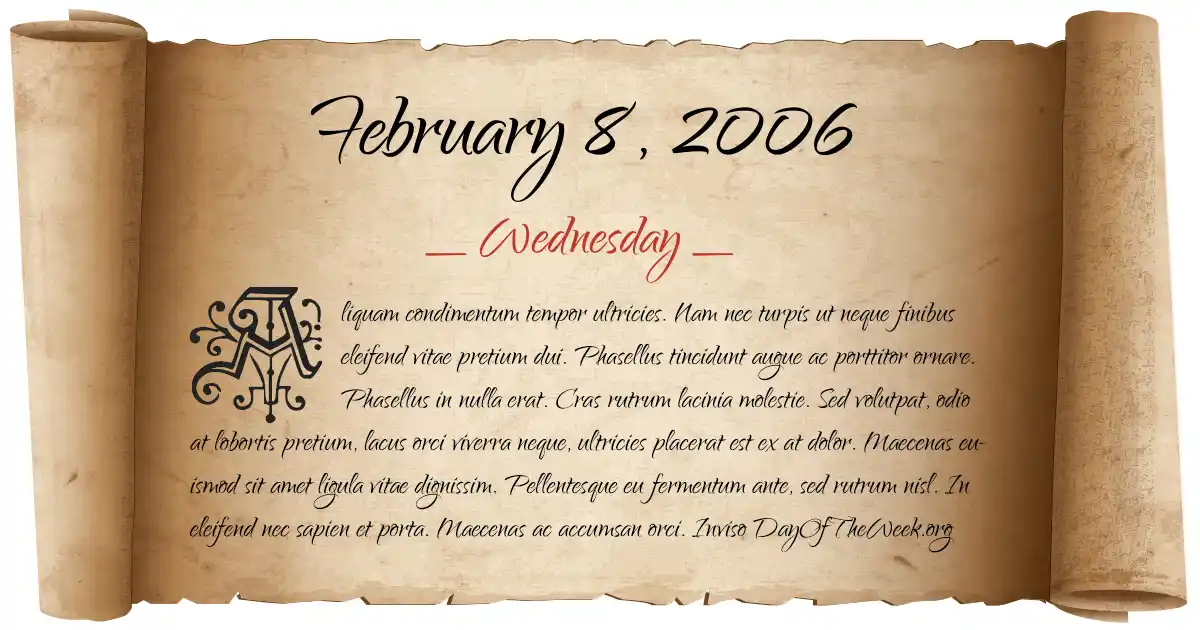 February 8, 2006
— Wednesday —
Aliquam condimentum tempor ultricies. Nam nec turpis ut neque finibus
eleifend vitae pretium dui. Phasellus tincidunt augue ac porttitor ornare.
Phasellus in nulla erat. Cras rutrum lacinia molestie. Sed volutpat, odio
at lobortis pretium, lacus orci viverra neque, ultricies placerat est ex at dolor. Maecenas eu-
ismod sit amet ligula vitae dignissim. Pellentesque eu fermentum ante, sed rutrum nisl. In
eleifend nec sapien et porta. Maecenas ac accumsan orci. Inviso DayOfTheWeek.org